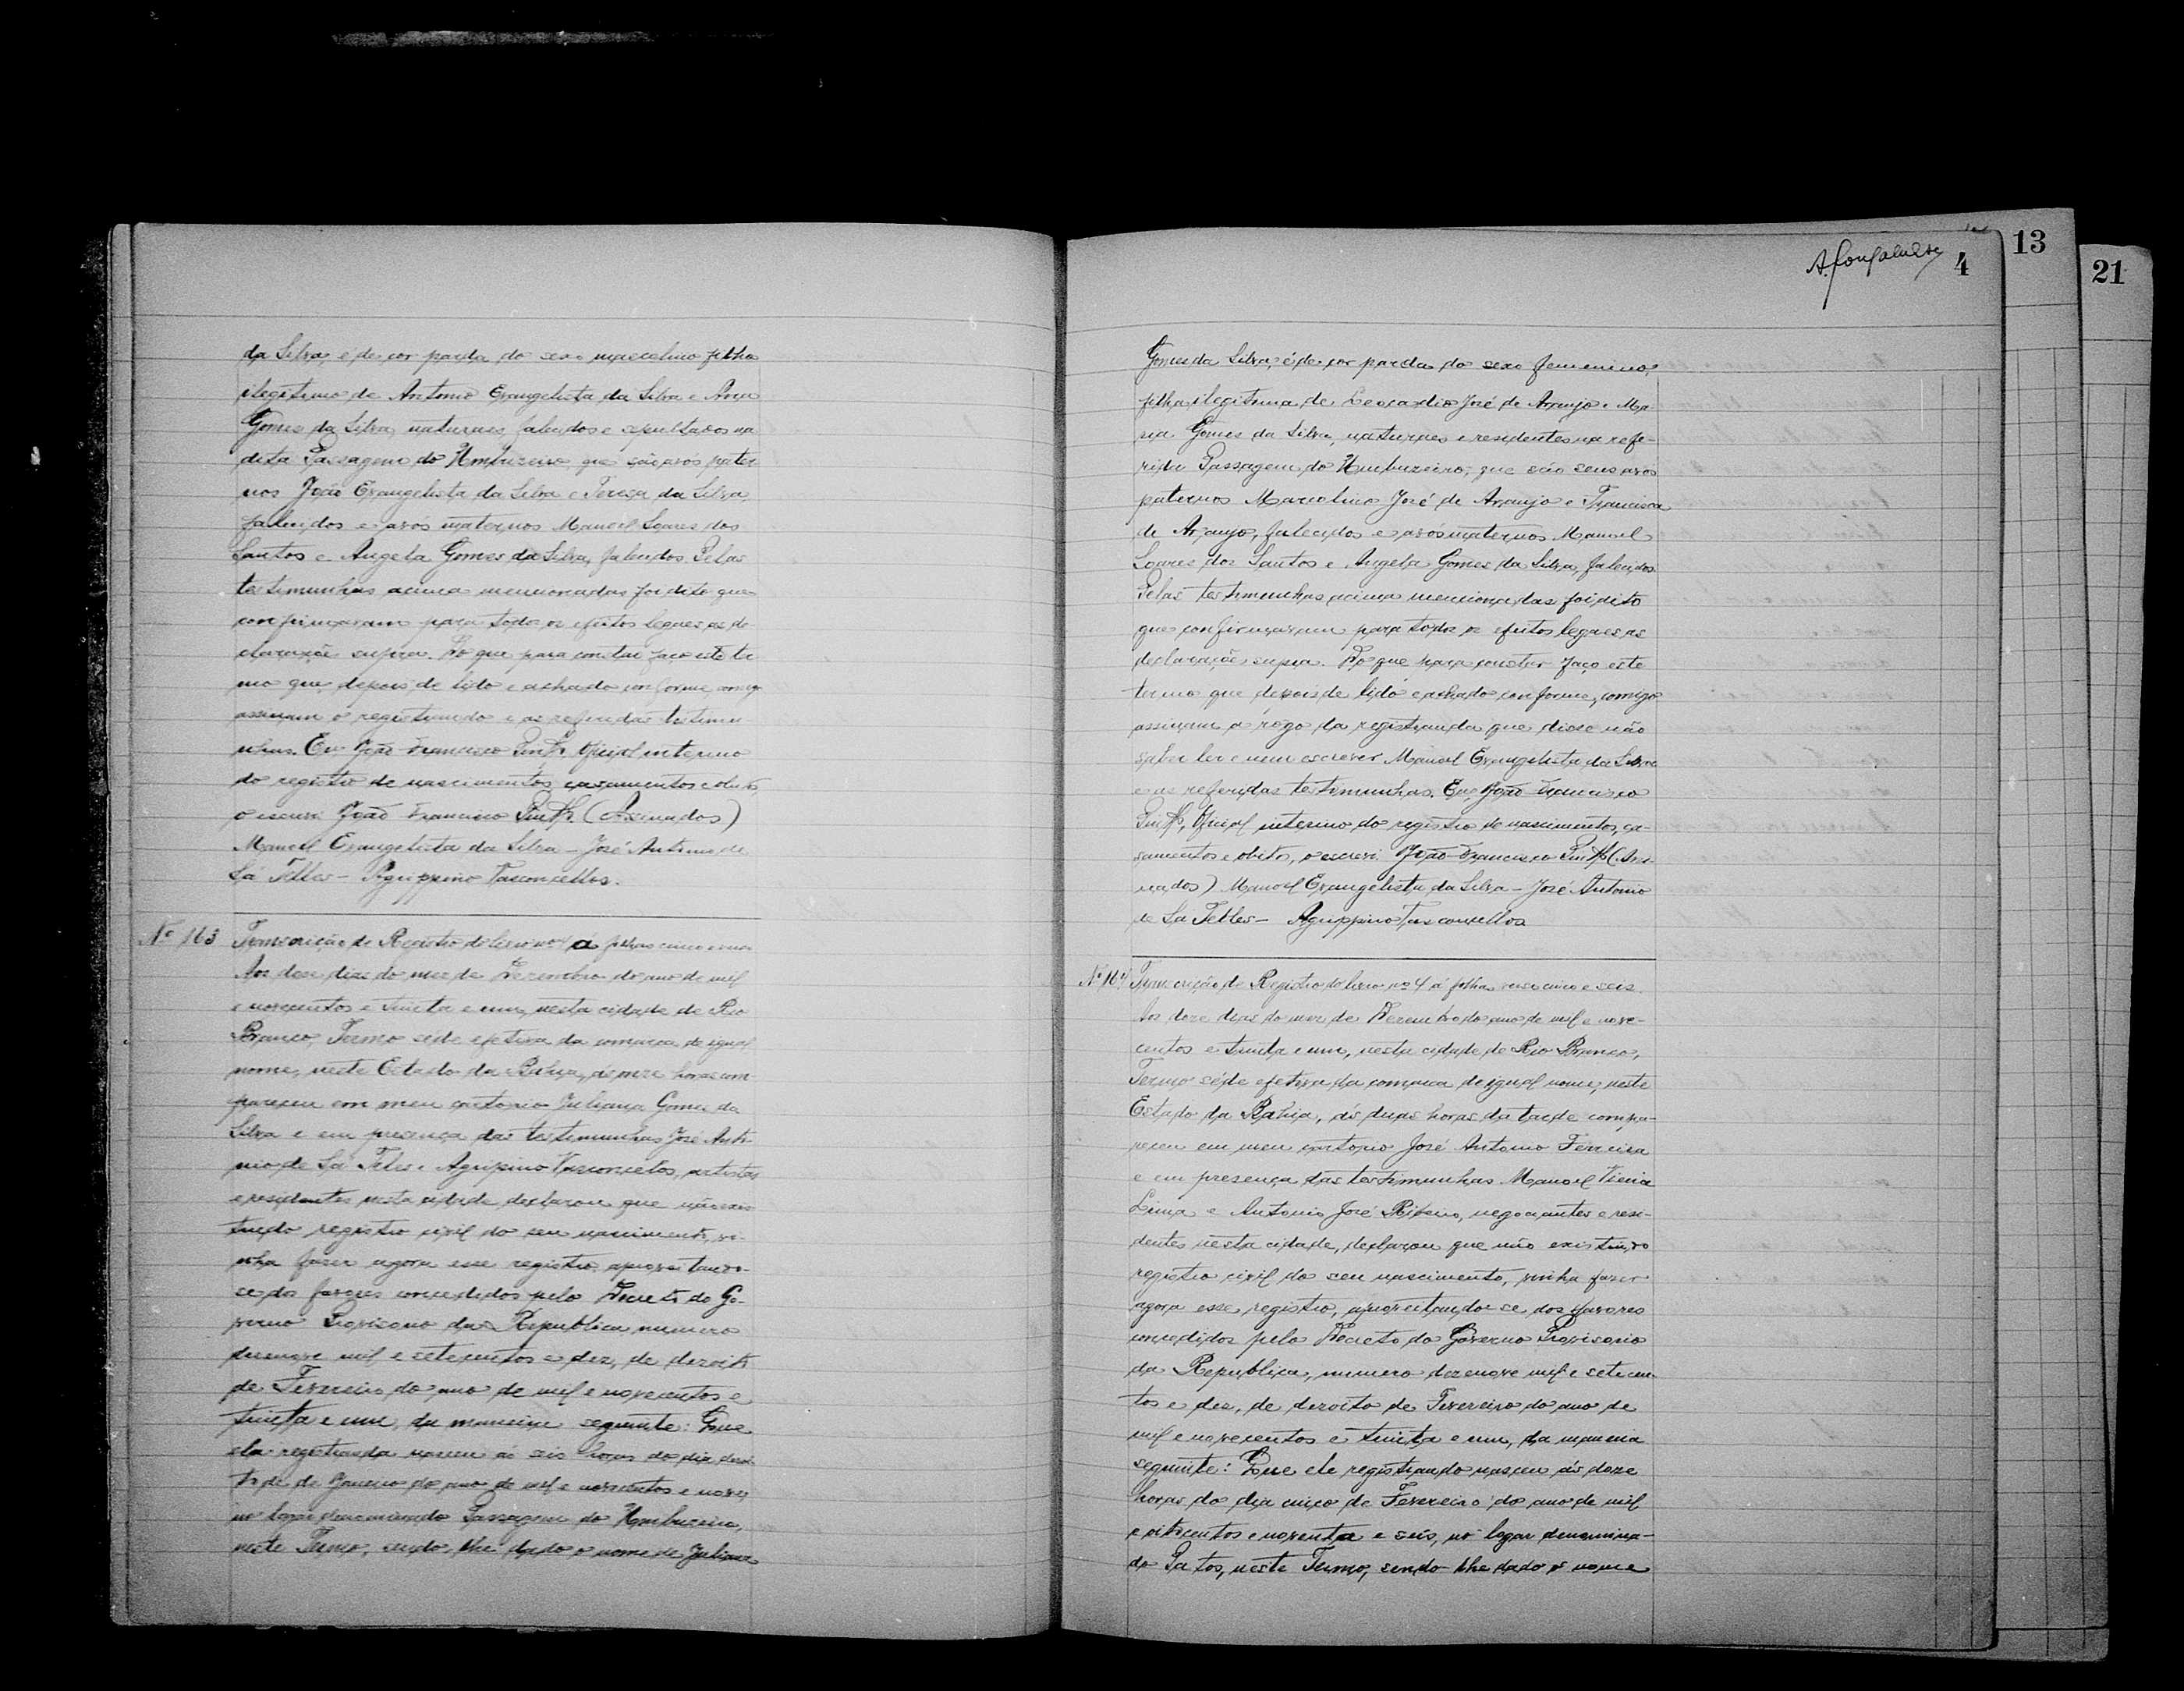 da Silva, é de cor parda do sexo masculino filho
ilegitimo de Antonio Evangelista da Silva e Ana
Gomes da Silva, naturaes, falecidos e sepultados na
dita Passagem do Umbuzeiro, que são avós pater
nos João Evangelista da Silva e Teresa da Silva,
falecidos e avós maternos Manoel Soares dos
Santos e Angela Gomes da Silva, falecidos. Pelas
testimunhas acima mencionadas foi dito que
confirmavam para todos os efeitos legaes as de
claração supra. Do que para constar faço este ter
mo que depois de lido e achado conforme, comigo
assinam o registrando e as referidas testimu
nhas. Eu João Francisco Official interino
do registro de nascimentos, casamentos e obitos,
o escrevi João Francisco (Assinados)
Manoel Evangelista da Silva - José Antonio de
Sá Telles - Agrippino Vasconcellos.
Nº 163 Transcrição de Registro do livro nº 4 á folhas cinco e
Aos doze dias do mez de Dezembro do ano de mil
e novecentos e trinta e um, nesta cidade de Rio
Branco, Termo séde efetiva da comarca de igual
nome, neste Estado da Bahia, ás onze horas com
pareceu em meu cartorio Juliana Gomes da
Silva e em presença das testimunhas José Anto
nio de Sá Teles e Agripino Vasconcelos, artistas
e residentes nesta cidade declarou que não exis
tindo registro civil do seu nascimento, vi-
nha fazer agora esse registro, aproveitando-
se dos favores concedidos pelo Decreto do Go-
verno Provisorio da Republica numero
dezenove mil e setecentos e dez, de dezoito
de Fevereiro do ano de mil e novecentos e
trinta e um, da maneira seguinte: Que
ela registranda nasceu ás seis horas do dia
de Janeiro do ano de mil e novecentos e nove,
no logar denominado Passagem do Umbuzeiro,
neste Termo, sendo-lhe dado o nome de Juliana
A. Gonçalves 4
13
21
Gomes da Silva, é de cor parda do sexo femenino,
filha ilegitima de Leocadio José de Araujo e Ma
ria Gomes da Silva, naturaes e residentes na refe-
rida Passagem do Umbuzeiro; que são seus avós
paternos Marcolino José de Araujo e Francisca
de Araujo, falecidos e avós maternos Manoel
Soares dos Santos e Angela Gomes da Silva, falecidos.
Pelas testimunhas acima mencionadas foi dito
que confirmavam para todos os efeitos legaes as
declaração supra. Do que para constar faço este
termo que depois de lido e achado conforme, comigo
assinam a rogo da registranda que disse não
saber ler e nem escrever Manoel Evangelista da Silva
e as referidas testimunhas. Eu, João Francisco
Official interino do registro de nascimentos, ca-
samentos e obitos, o escrevi. João Francisco (Assi-
nados) Manoel Evangelista da Silva - José Antonio
de Sá Telles - Agrippino Vasconcellos
Nº 164 Transcrição de Registro do livro nº 4 á folhas cinco e seis.
Aos doze dias do mez de Dezembro do ano de mil e nove-
centos e trinta e um, nesta cidade de Rio Branco,
Termo séde efetiva da comarca de igual nome, neste
Estado da Bahia, ás duas horas da tarde compa-
receu em meu cartorio José Antonio Ferreira
e em presença das testimunhas Manoel Vieira
Lima e Antonio José Ribeiro, negociantes e resi-
dentes nesta cidade, declarou que não existindo
registro civil do seu nascimento, vinha fazer
agora esse registro, aproveitando-se dos favores
concedidos pelo Decreto do Governo Provisorio
da Republica, numero dezenove mil e setecen-
tos e dez, de dezoito de Fevereiro do ano de
mil e novecentos e trinta e um, da maneira
seguinte: Que ele registrando nasceu ás doze
horas do dia cinco de Fevereiro do ano de mil
e oitocentos e noventa e seis, no logar denomina-
do Patos, neste Termo, sendo-lhe dado o nome